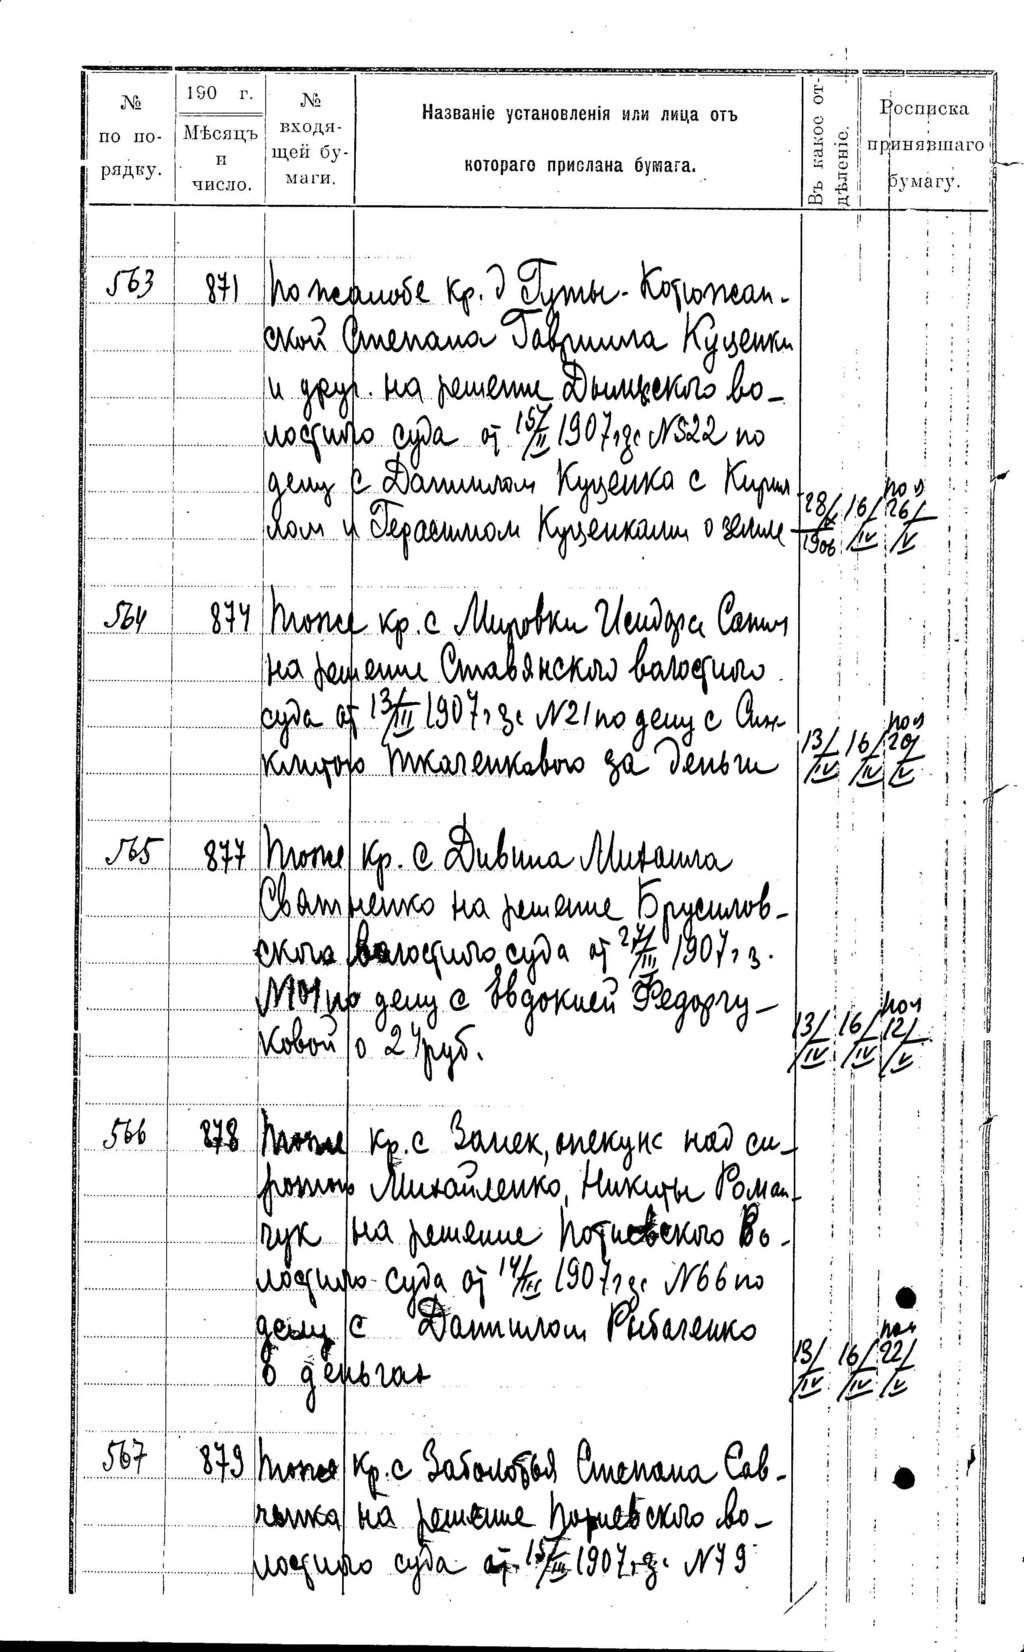 № по порядку.
190 г. Мѣсяцъ и число.
№ входящей бумаги.
Названіе установленія или лица отъ котораго прислана бумага.
Въ какое отдѣленіе.
Росписка принявшаго бумагу.
563 871 По жалобе кр. д Гуты-Котюжан-
ской Степана Гавриила Куценки
и друг. на решение Дымерского во-
лостного суда от 15/II 1907 г за №522 по
делу с Даниилом Куценка с Кирил
лом и Герасимом Куценками о земле
28/IX 1906 16/IV пол 26/V
564 874 Тоже кр. с Мировки Исидора
на решение Ставянского волостного
суда от 13/III 1907 г за №21 по делу с Син-
клитою Ткаченковою за деньги
13/IV 16/IV пол 20/V
565 877 Тоже кр. с Дивина Михаила
Сватненко на решение Брусилов-
ского волостного суда от 24/III 1907 г з.
№101 по делу с Евдокией Федорчу-
ковой о 24 руб.
13/IV 16/IV пол 12/V
566 878 Тоже кр. с Замек, опекунс над си-
ротою Михайленко, Никиты Роман-
чук на решение Потиевского Во-
лостного суда от 14/III 1907 г за №66 по
делу с Даниилом Рыбаченко
о деньгах
13/IV 16/IV пол 22/V
567 879 Тоже кр. с Заболотья Степана Сав-
ченка на решение Потиевского во-
лостного суда от 15/III 1907 г за №79